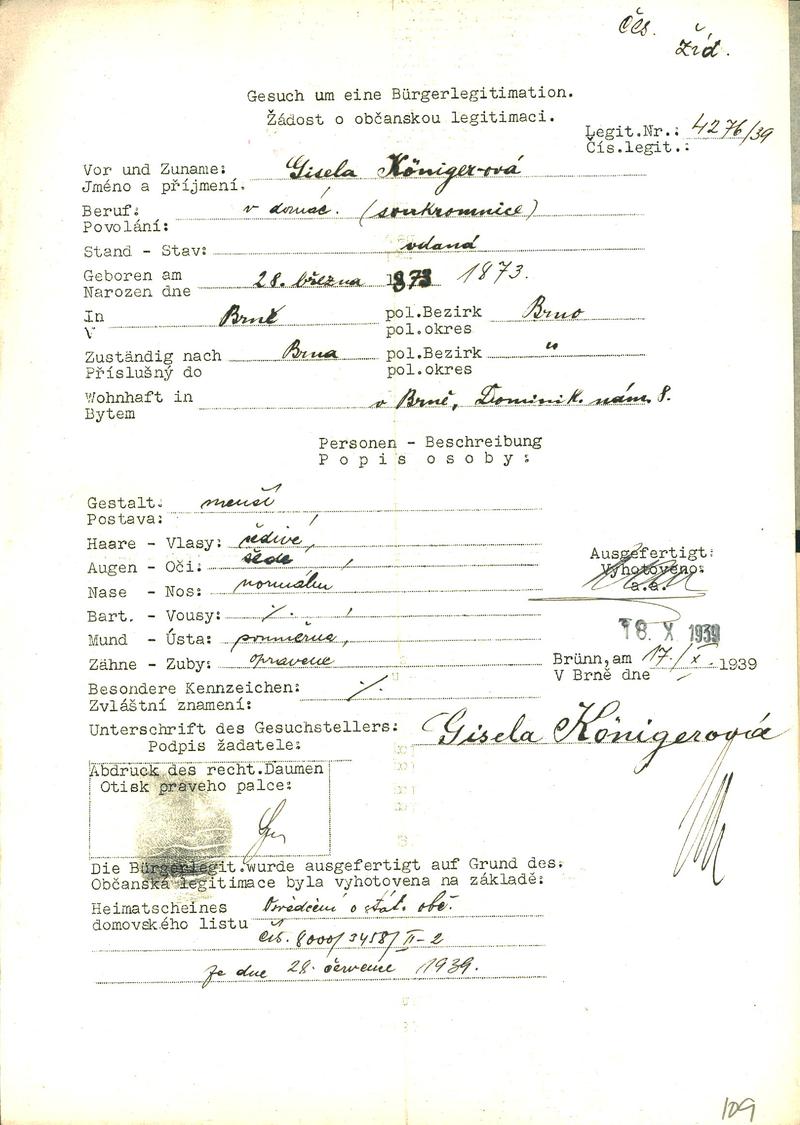 čes.
žid.
Gesuch um eine Bürgerlegitimation.
Žádost o občanskou legitimaci.
Legit.Nr.: 4276/39
Čís.legit.:
Vor und Zuname: Gisela Königer-ová
Jméno a příjmení.
Beruf: v domác. (soukromnice)
Povolání:
Stand - Stav: vdaná
Geboren am 28. března 1873 1873.
Narozen dne
In Brně pol.Bezirk Brno
V pol.okres
Zuständig nach Brna pol.Bezirk "
Příslušný do pol.okres
Wohnhaft in v Brně, Dominik. nám. 8.
Bytem
Personen - Beschreibung
Popis osoby:
Gestalt: menší
Postava:
Haare - Vlasy: šedivé,
Augen - Oči: šedé,
Nase - Nos: normální
Bart. - Vousy: ·/.
Mund - Ústa: souměrná,
Zähne - Zuby: opravené
Ausgefertigt:
Vyhotoveno:
a.a.
18. X 1939
Brünn, am 17./X. 1939
V Brně dne
Besondere Kennzeichen: ·/.
Zvláštní znamení:
Unterschrift des Gesuchstellers: Gisela Königerová
Podpis žadatele:
Abdruck des recht.Daumen
Otisk pravého palce:
Die Bürgerlegit.wurde ausgefertigt auf Grund des:
Občanská legitimace byla vyhotovena na základě:
Heimatscheines Osvědčení o stát. obč.
domovského listu čís. 8000/3458/II-2
ze dne 28. července 1939.
109